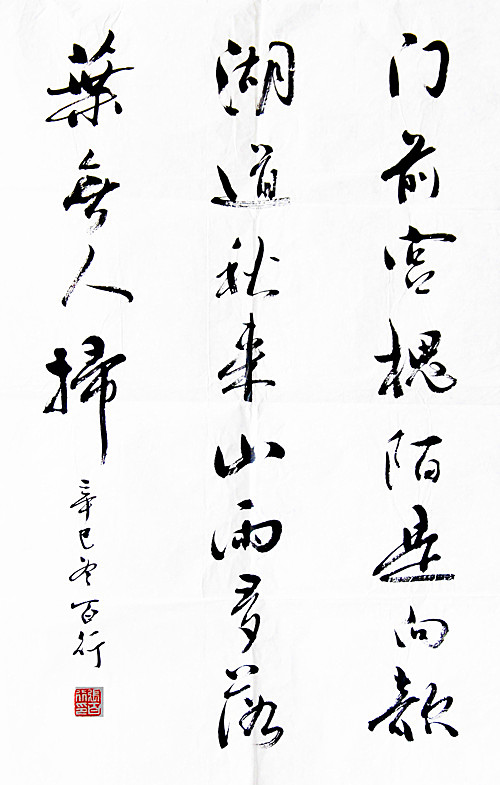 门前宫槐陌是向欹
湖道秋来山雨多落
葉無人掃
辛巳冬百行